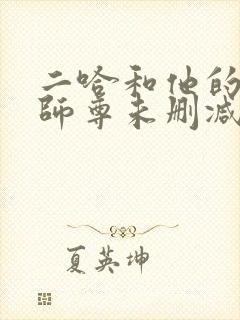 二哈和他的
师尊未删减
夏英坤